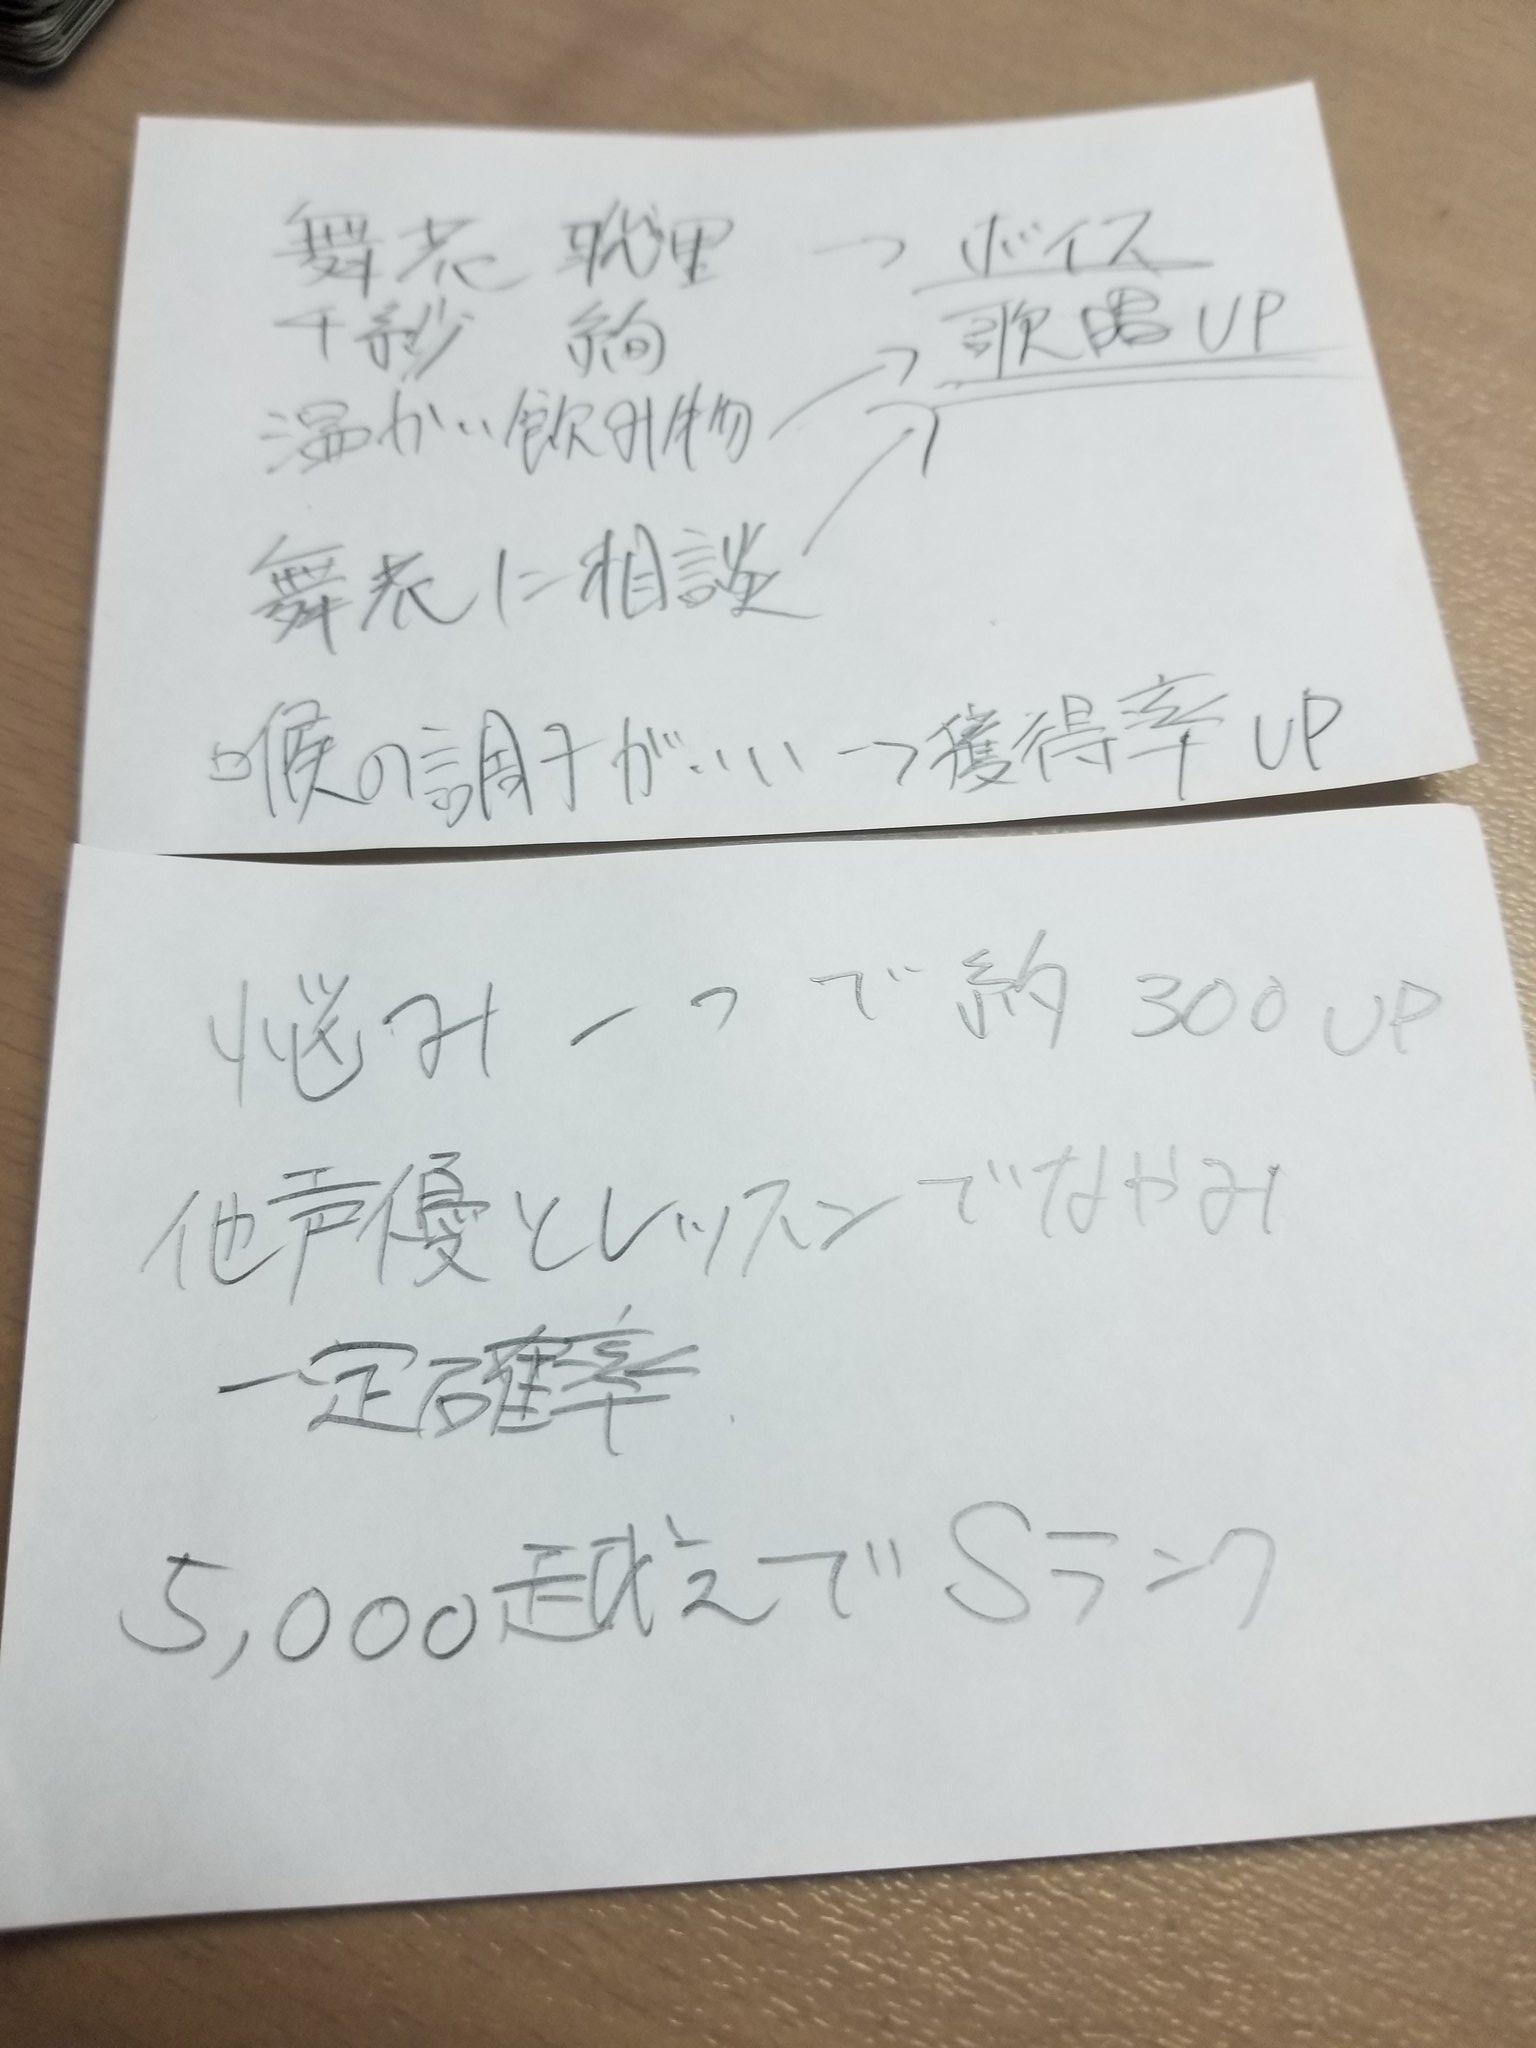 舞衣 瑛里 → ボイス
千紗 絢 歌唱UP
温かい飲み物 →
舞衣に相談
喉の調子がいい→獲得率UP
悩み一つで約300UP
他声優とレッスンでなやみ
一定確率
5,000越えでSランク